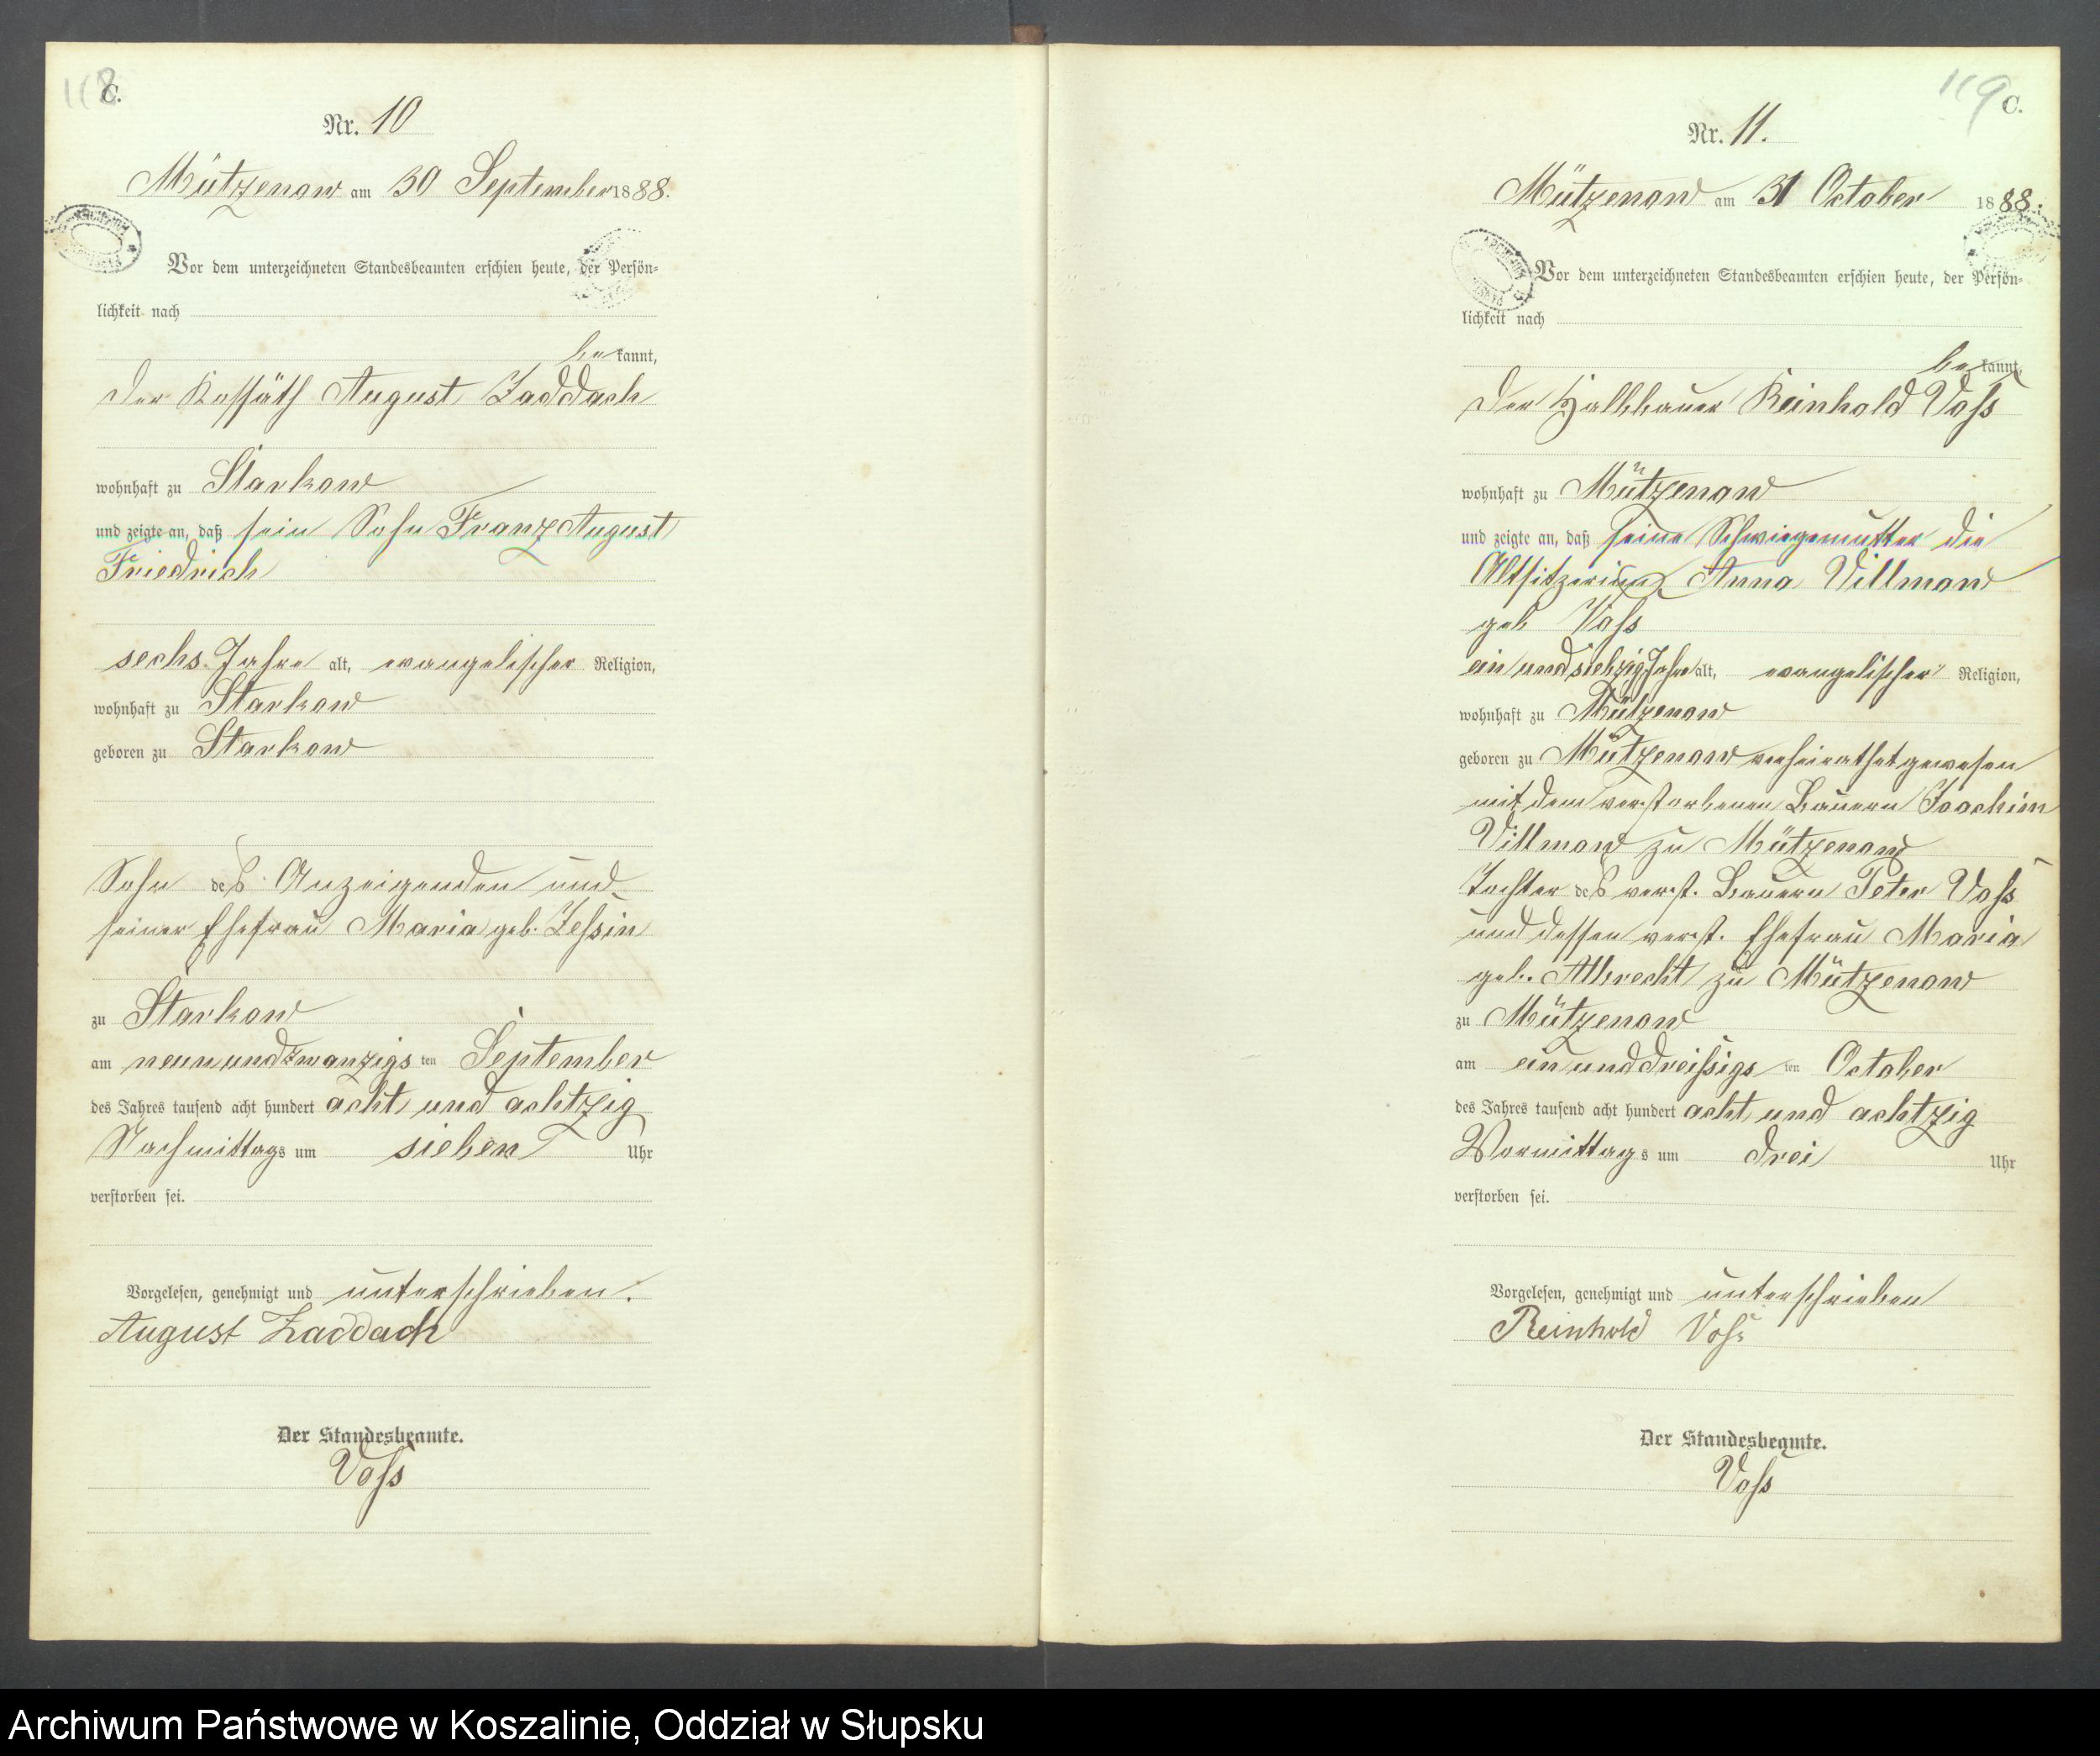 118
C.
Nr. 10
Mützenow am 30 September 1888.
Vor dem unterzeichneten Standesbeamten erschien heute, der Persön-
lichkeit nach
bekannt,
der Kossäth August Zaddach
wohnhaft zu Starkow
und zeigte an, daß sein Sohn Franz August
Friedrich
sechs Jahre alt, evangelischer Religion,
wohnhaft zu Starkow
geboren zu Starkow
Sohn des Anzeigenden und
seiner Ehefrau Maria geb. Zessin
zu Starkow
am neun und zwanzigsten September
des Jahres tausend acht hundert acht und achtzig
Nachmittags um sieben Uhr
verstorben sei.
Vorgelesen, genehmigt und unterschrieben.
August Zaddach
Der Standesbeamte.
Voss
119
C.
Nr. 11.
Mützenow am 31 October 1888.
Vor dem unterzeichneten Standesbeamten erschien heute, der Persön-
lichkeit nach
bekannt,
der Halbbauer Reinhold Voss
wohnhaft zu Mützenow
und zeigte an, daß seine Schwiegemutter die
Altsitzerin Anna Villmow
geb Voss
ein und siebzig Jahre alt, evangelischer Religion,
wohnhaft zu Mützenow
geboren zu Mützenow verheirathet gewesen
mit dem verstorbenen Bauern Joachim
Villmow zu Mützenow
Tochter des verst. Bauern Peter Voss
und dessen verst. Ehefrau Maria
geb. Albrecht zu Mützenow
zu Mützenow
am ein und dreissigsten October
des Jahres tausend acht hundert acht und achtzig
Vormittags um drei Uhr
verstorben sei.
Vorgelesen, genehmigt und unterschrieben
Reinhold Voss
Der Standesbeamte.
Voss
Archiwum Państwowe w Koszalinie, Oddział w Słupsku